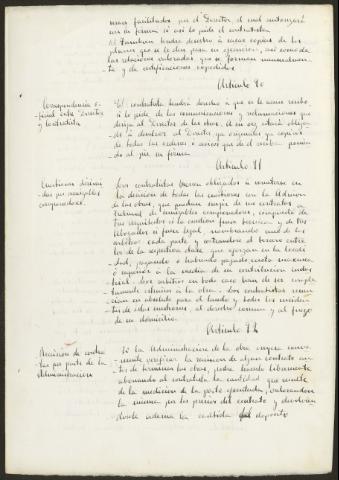 mero facilitados por el Director, el cual autorizará
con su firma si así lo pide el contratista
El Contratista tendrá derecho a sacar copias de los
planos que se le den para su ejecución, así como de
las relaciones valoradas, que se forman mensualmen-
te y de certificaciones expedidas
Articulo 90
Correspondencia o-
ficial entre Director
y Contratista
El contratista tendrá derecho a que se le acuse recibo,
si lo pide de las comunicaciones y reclamaciones que
dirija al Director de las obras, a su vez estará obliga-
do a devolver al Director, ya originales ya copias
de todas las ordenes o avisos que de él reciba ponien-
do al pie su firma
Articulo 91
Cuestiones dirimi-
das por amigables
componedores.
Los contratistas vienen obligados a someterse en
la decisión de todas las cuestiones con la Admon
de las obras, que puedan surgir de sus contratos a
tribunal de amigables componedores, compuesto de
tres arquitectos si la cuestion fuese técnica y de tres
Abogados si fuese legal, nombrando uno de los
arbitros cada parte y sorteandose el tercero entre
los de la respectiva clase que ejerzan en la locali-
dad, pagando o habiendo pagado, cuota maxima
o superior a la media de su contribucion indus-
trial. Los arbitros en todo caso han de ser comple-
tamente extraños a la obra. Los contratistas renun-
cian en absoluto para el laudo y todos los inciden-
tes de estas cuestiones, al derecho comun y al fuero
de su domicilio.
Articulo 92
Rescision de contra-
ta por parte de la
Administracion
Si la Administracion de la obra creyera conve-
niente verificar la rescision de algun contrato an-
tes de terminar las obras, podrá hacerlo libremente
abonando al contratista la cantidad que resulte
de la medicion de la parte ejecutada, valorandose
la misma por los precios del contrato y devolvien-
dosele ademas la cantidad del deposito